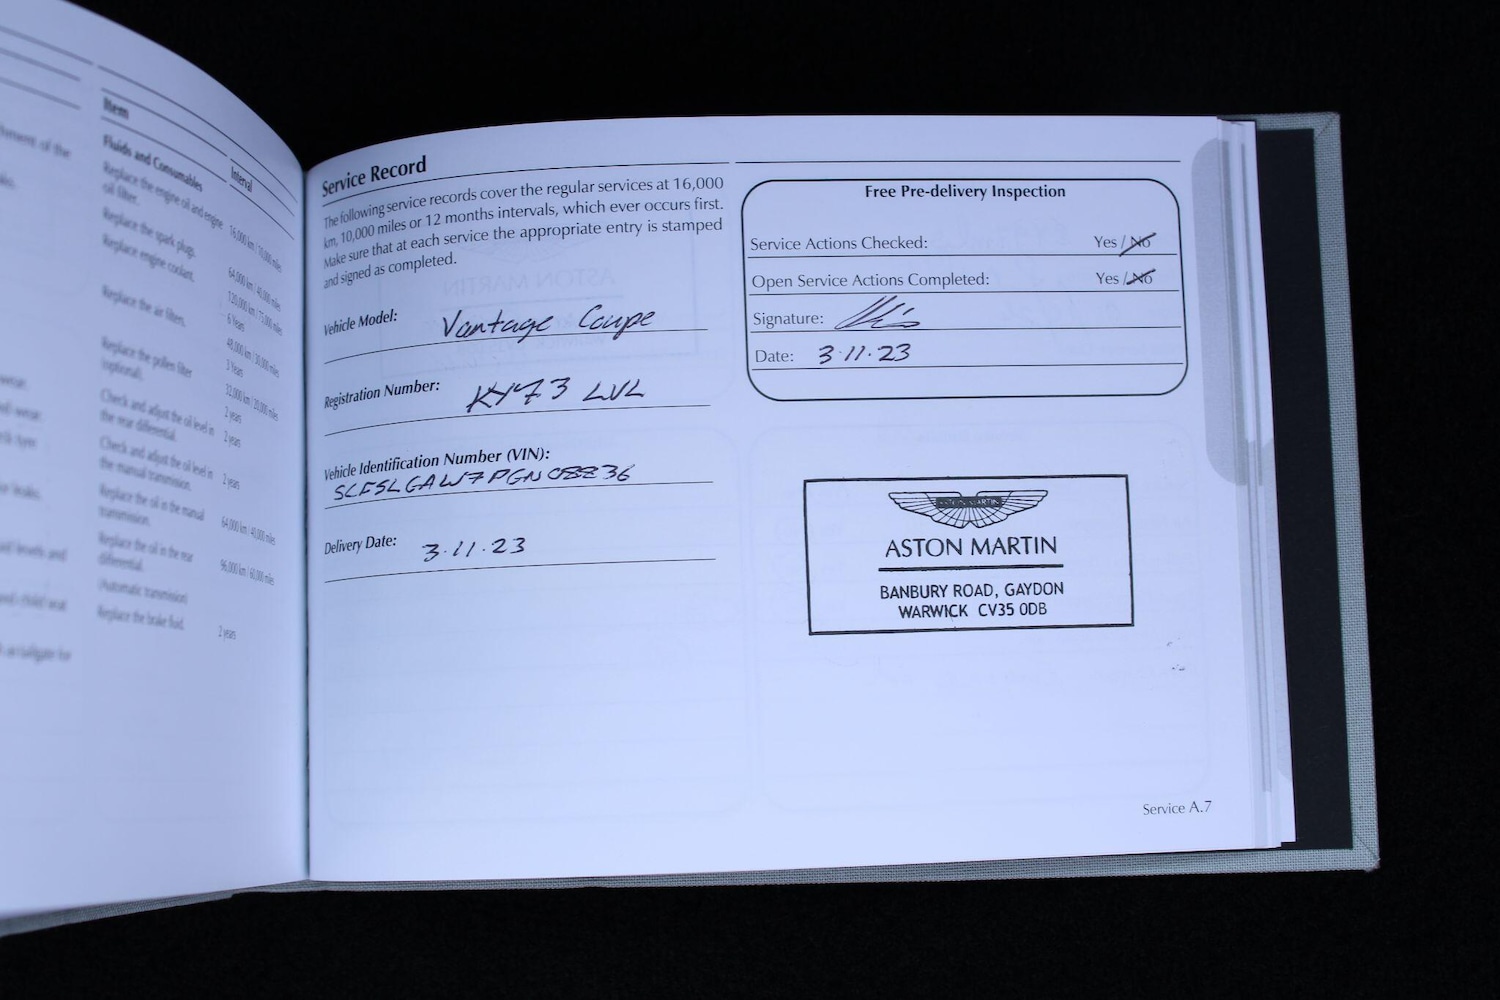 Item
Interval
Fluids and Consumables
Replace the engine oil and engine
oil filter.
16,000 km / 10,000 miles
Replace the spark plugs.
64,000 km / 40,000 miles
Replace engine coolant.
120,000 km / 75,000 miles
6 Years
Replace the air filters.
48,000 km / 30,000 miles
3 Years
Replace the pollen filter
(optional).
32,000 km / 20,000 miles
2 years
Check and adjust the oil level in
the rear differential.
2 years
Check and adjust the oil level in
the manual transmission.
2 years
Replace the oil in the manual
transmission.
64,000 km / 40,000 miles
Replace the oil in the rear
differential.
96,000 km / 60,000 miles
(Automatic transmission)
Replace the brake fluid.
2 years
Service Record
The following service records cover the regular services at 16,000
km, 10,000 miles or 12 months intervals, which ever occurs first.
Make sure that at each service the appropriate entry is stamped
and signed as completed.
Vehicle Model: Vantage Coupe
Registration Number: KY73 LVL
Vehicle Identification Number (VIN):
SCFSLGAW7PGN08836
Delivery Date: 3·11·23
Free Pre-delivery Inspection
Service Actions Checked: Yes / No
Open Service Actions Completed: Yes / No
Signature:
Date: 3·11·23
ASTON MARTIN
ASTON MARTIN
BANBURY ROAD, GAYDON
WARWICK CV35 0DB
Service A.7